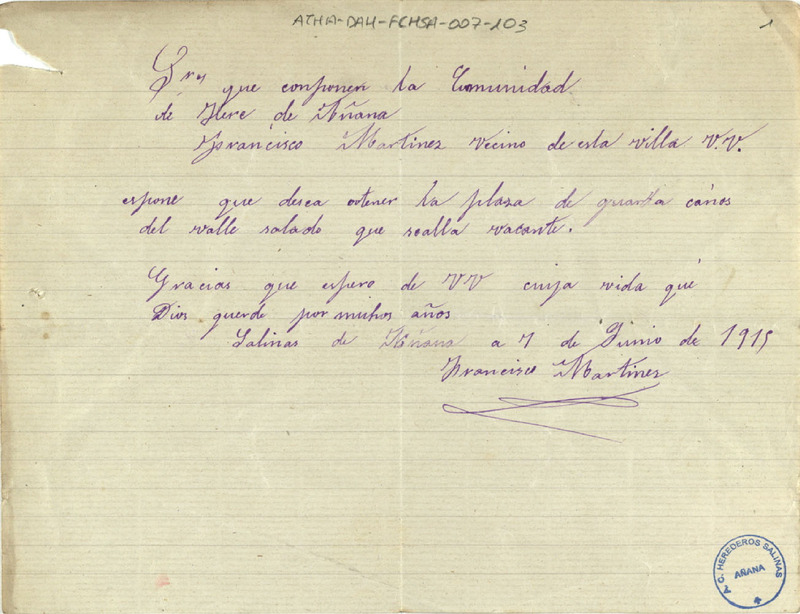 ATHA-DAH-FCHSA-007-103
1
Sres que componen la Comunidad
de Here de Añana
Francisco Martinez vecino de esta villa V.V.
espone que desea obtener la plaza de guarda caños
del valle salado que sealla vacante.
Gracias que espero de VV cuya vida que
Dios guerde por muchos años
Salinas de Añana a 7 de Junio de 1915
Francisco Martinez
A.C. HEREDEROS SALINAS
AÑANA